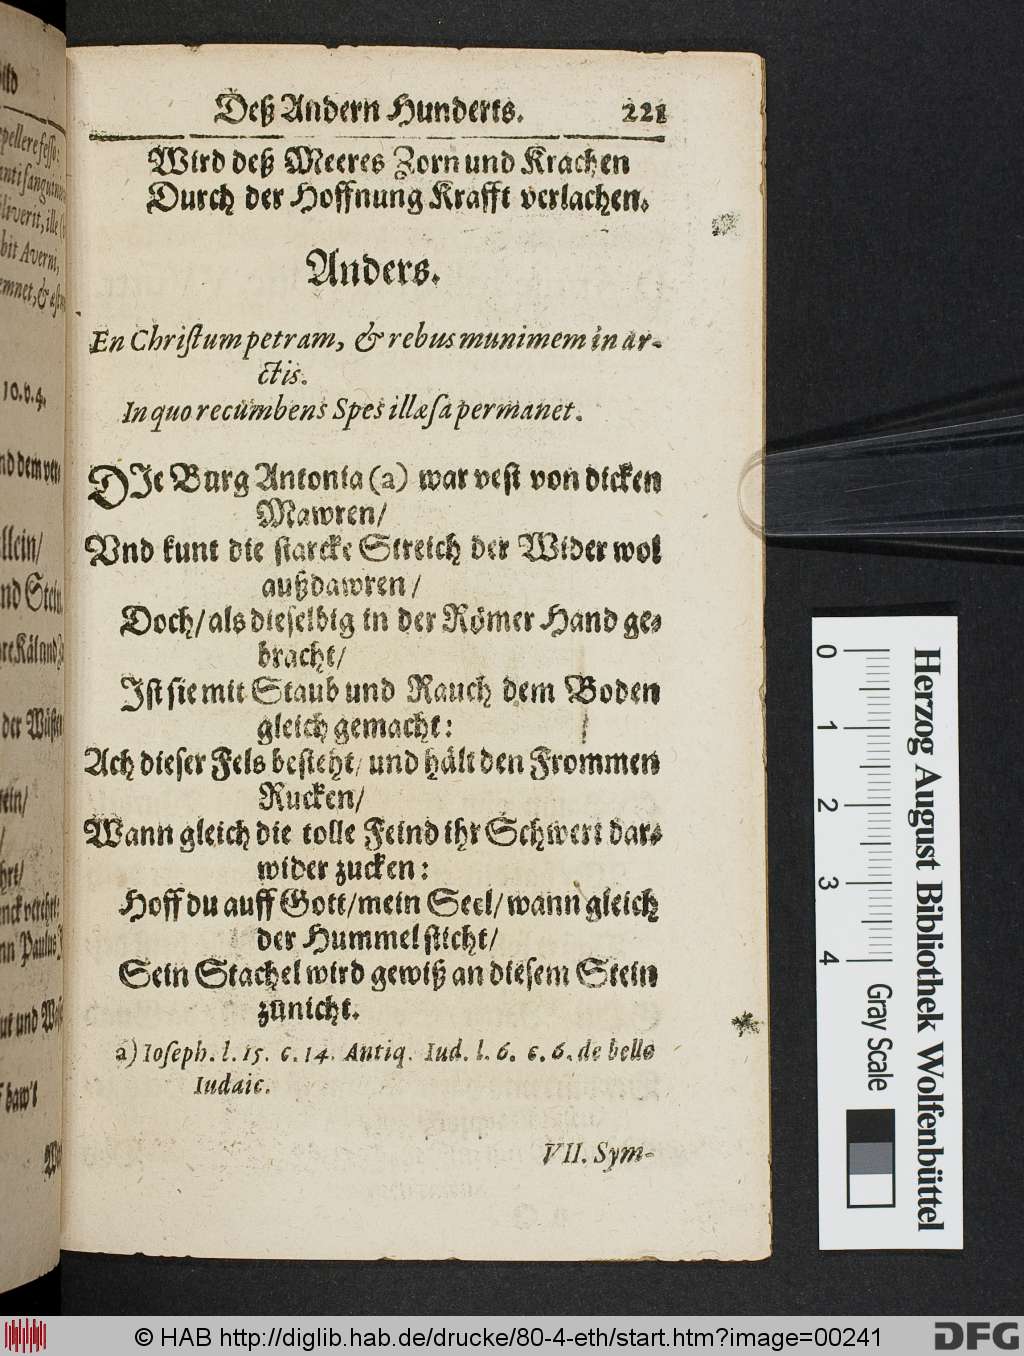 Deß Andern Hunderts. 221
Wird deß Meeres Zorn und Krachen
Durch der Hoffnung Krafft verlachen.
Anders.
En Chriſtum petram, & rebus munimem in ar-
ctis.
In quo recumbens Spes illæſa permanet.
DIe Burg Antonia (a) war veſt von dicken
Mawren/
Vnd kunt die ſtarcke Streich der Wider wol
außdawren/
Doch/ als dieſelbig in der Römer Hand ge-
bracht/
Iſt ſie mit Staub und Rauch dem Boden
gleich gemacht:
Ach dieſer Fels beſteht/ und hält den Frommen
Rucken/
Wann gleich die tolle Feind ihr Schwert dar-
wider zucken:
Hoff du auff Gott/ mein Seel/ wann gleich
der Hummel ſticht/
Sein Stachel wird gewiß an dieſem Stein
zünicht.
a) Ioſeph. l. 15. c. 14. Antiq. Iud. l. 6. c. 6. de bello
Iudaic.
VII. Sym-
0 1 2 3 4
Herzog August Bibliothek Wolfenbüttel
Gray Scale
© HAB http://diglib.hab.de/drucke/80-4-eth/start.htm?image=00241
DFG